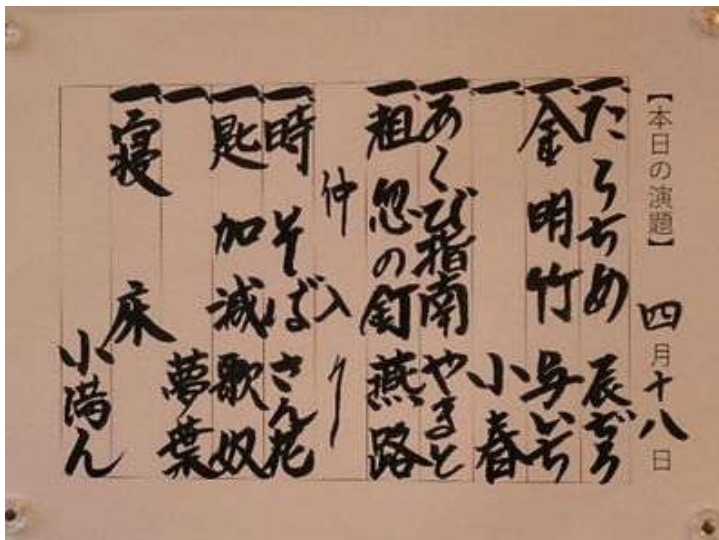 【本日の演題】 四月十八日
一、たらちめ 辰ぢろ
一、金明竹 与いち
一、 小春
一、あくび指南 やまと
一、粗忽の釘 燕路
仲入り
一、時そば さん花
一、匙加減 歌奴
一、 夢葉
一、寝床
小満ん